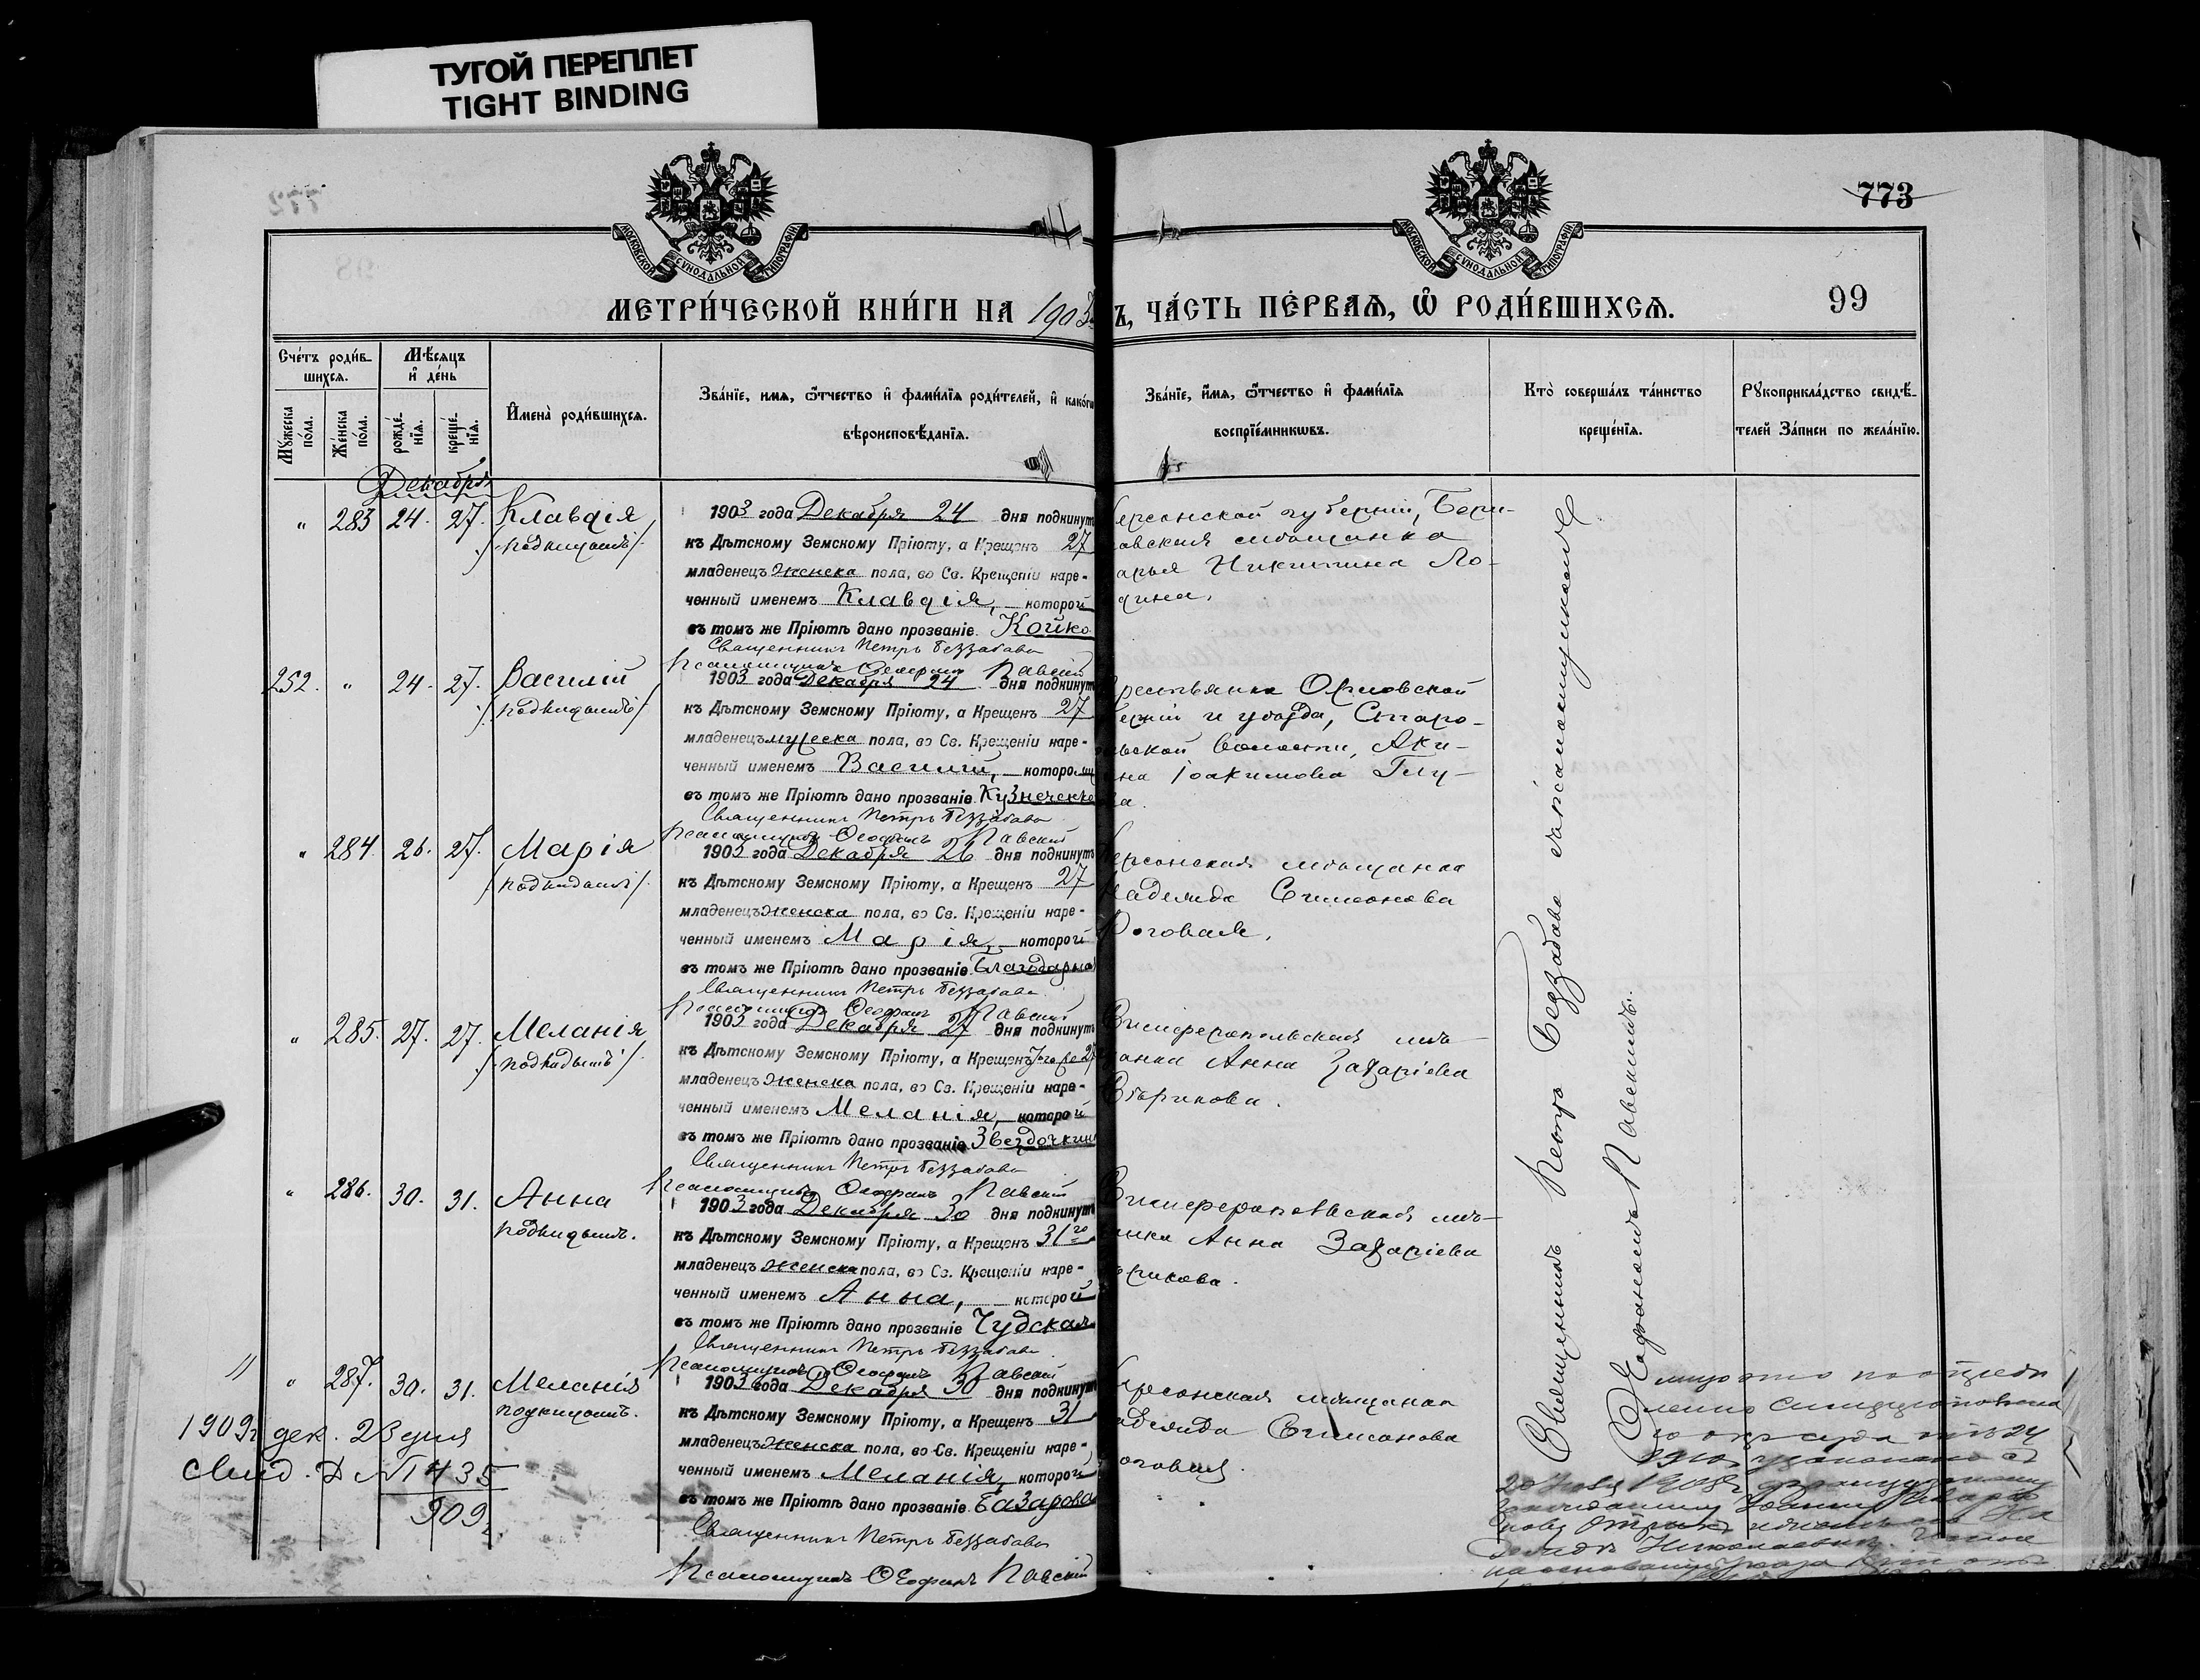 ТУГОЙ ПЕРЕПЛЕТ
TIGHT BINDING
МОСКОВСКОЙ СѴНОДАЛЬНОЙ ТИПОГРАФІИ
МОСКОВСКОЙ СѴНОДАЛЬНОЙ ТИПОГРАФІИ
773
99
МЕТРИ́ЧЕСКОЙ КНИ́ГИ НА 1903
Ъ, ЧА́СТЬ ПЕ́РВАЯ, Ѿ РОДИ́ВШИХСЯ.
Сче́тъ роди́в-
шихся.
Мꙋжеска по́ла.
Же́нска по́ла.
Мѣ́сяцъ
и де́нь
рожде́-нїя.
креще́-нїя.
Имена̀ роди́вшихся.
Зва́нїе, имя, ѻ҆́тчество и фами́лїя роди́телей, и како́гѡ
вѣроисповѣ́данїя.
Зва́нїе, и́мя, ѻ҆́тчество и фами́лїя
воспрїе́мникѡвъ.
Кто̀ соверша́лъ та́инство
креще́нїя.
Рꙋкоприкла́дство свидѣ́-
телей За́писи по жела́нїю.
Декабрь
" 283 24. 27. Клавдія
/подкидышъ/.
1903 года Декабря 24 дня подкинутъ
къ Дѣтскому Земскому Пріюту, а Крещенъ 27
младенецъ женска пола, во Св. Крещеніи наре-
ченный именемъ Клавдія, которой
въ томъ же Пріютѣ дано прозваніе Койко
Священникъ Петръ Беззабава
Псаломщикъ Ѳеофанъ Павскій
ерсонской губерніи, Бери-
авская мѣщанка
арья Никитина Ло-
дина.
252. " 24. 27. Василій
/подкидышъ/
1903 года Декабря 24 дня подкинутъ
къ Дѣтскому Земскому Пріюту, а Крещенъ 27
младенецъ мужеска пола, во Св. Крещеніи наре-
ченный именемъ Василій, котором
въ томъ же Пріютѣ дано прозваніе Кузнеченко
Священникъ Петръ Беззабава
Псаломщикъ Ѳеофанъ Павскій
рестьянка Орловской
ерніи и уѣзда, Старо-
ьской волости, Аки-
на Іоакимова Глу-
ва.
" 284. 26. 27. Марія
/подкидышъ/.
1903 года Декабря 26 дня подкинутъ
къ Дѣтскому Земскому Пріюту, а Крещенъ 27
младенецъ женска пола, во Св. Крещеніи наре-
ченный именемъ Марія, которой
въ томъ же Пріютѣ дано прозваніе Благодарна
Священникъ Петръ Беззабава
Псаломщикъ Ѳеофанъ Павскій
ерсонская мѣщанка
Надежда Симеонова
Роговая.
" 285. 27. 27. Меланія
/подкидышъ/.
1903 года Декабря 27 дня подкинутъ
къ Дѣтскому Земскому Пріюту, а Крещенъ 27
младенецъ женска пола, во Св. Крещеніи наре-
ченный именемъ Меланія, которой
въ томъ же Пріютѣ дано прозваніе Звездочкин
Священникъ Петръ Беззабава
Псаломщикъ Ѳеофанъ Павскій
Симферопольская мѣ-
анка Анна Захаріева
" 286. 30. 31. Анна
подкидышъ.
1903 года Декабря 30 дня подкинутъ
къ Дѣтскому Земскому Пріюту, а Крещенъ 31го
младенецъ женска пола, во Св. Крещеніи наре-
ченный именемъ Анна, которой
въ томъ же Пріютѣ дано прозваніе Чудская
Священникъ Петръ Беззабава
Псаломщикъ Ѳеофанъ Павскій
Симферопольская мѣ-
анка Анна Захаріева
" 287. 30. 31. Меланія
подкидышъ.
1903 года Декабря 30 дня подкинутъ
къ Дѣтскому Земскому Пріюту, а Крещенъ 31
младенецъ женска пола, во Св. Крещеніи наре-
ченный именемъ Меланія, которой
въ томъ же Пріютѣ дано прозваніе Базарова
Священникъ Петръ Беззабава
Псаломщикъ Ѳеофанъ Павскій
ерсонская мѣщанка
адежда Симеонова
оговая.
1909 г. дек. 23 дня
свид. № 1435
909
Священникъ Петръ Беззабава съ псаломщикомъ
Ѳеофаномъ Павскимъ.